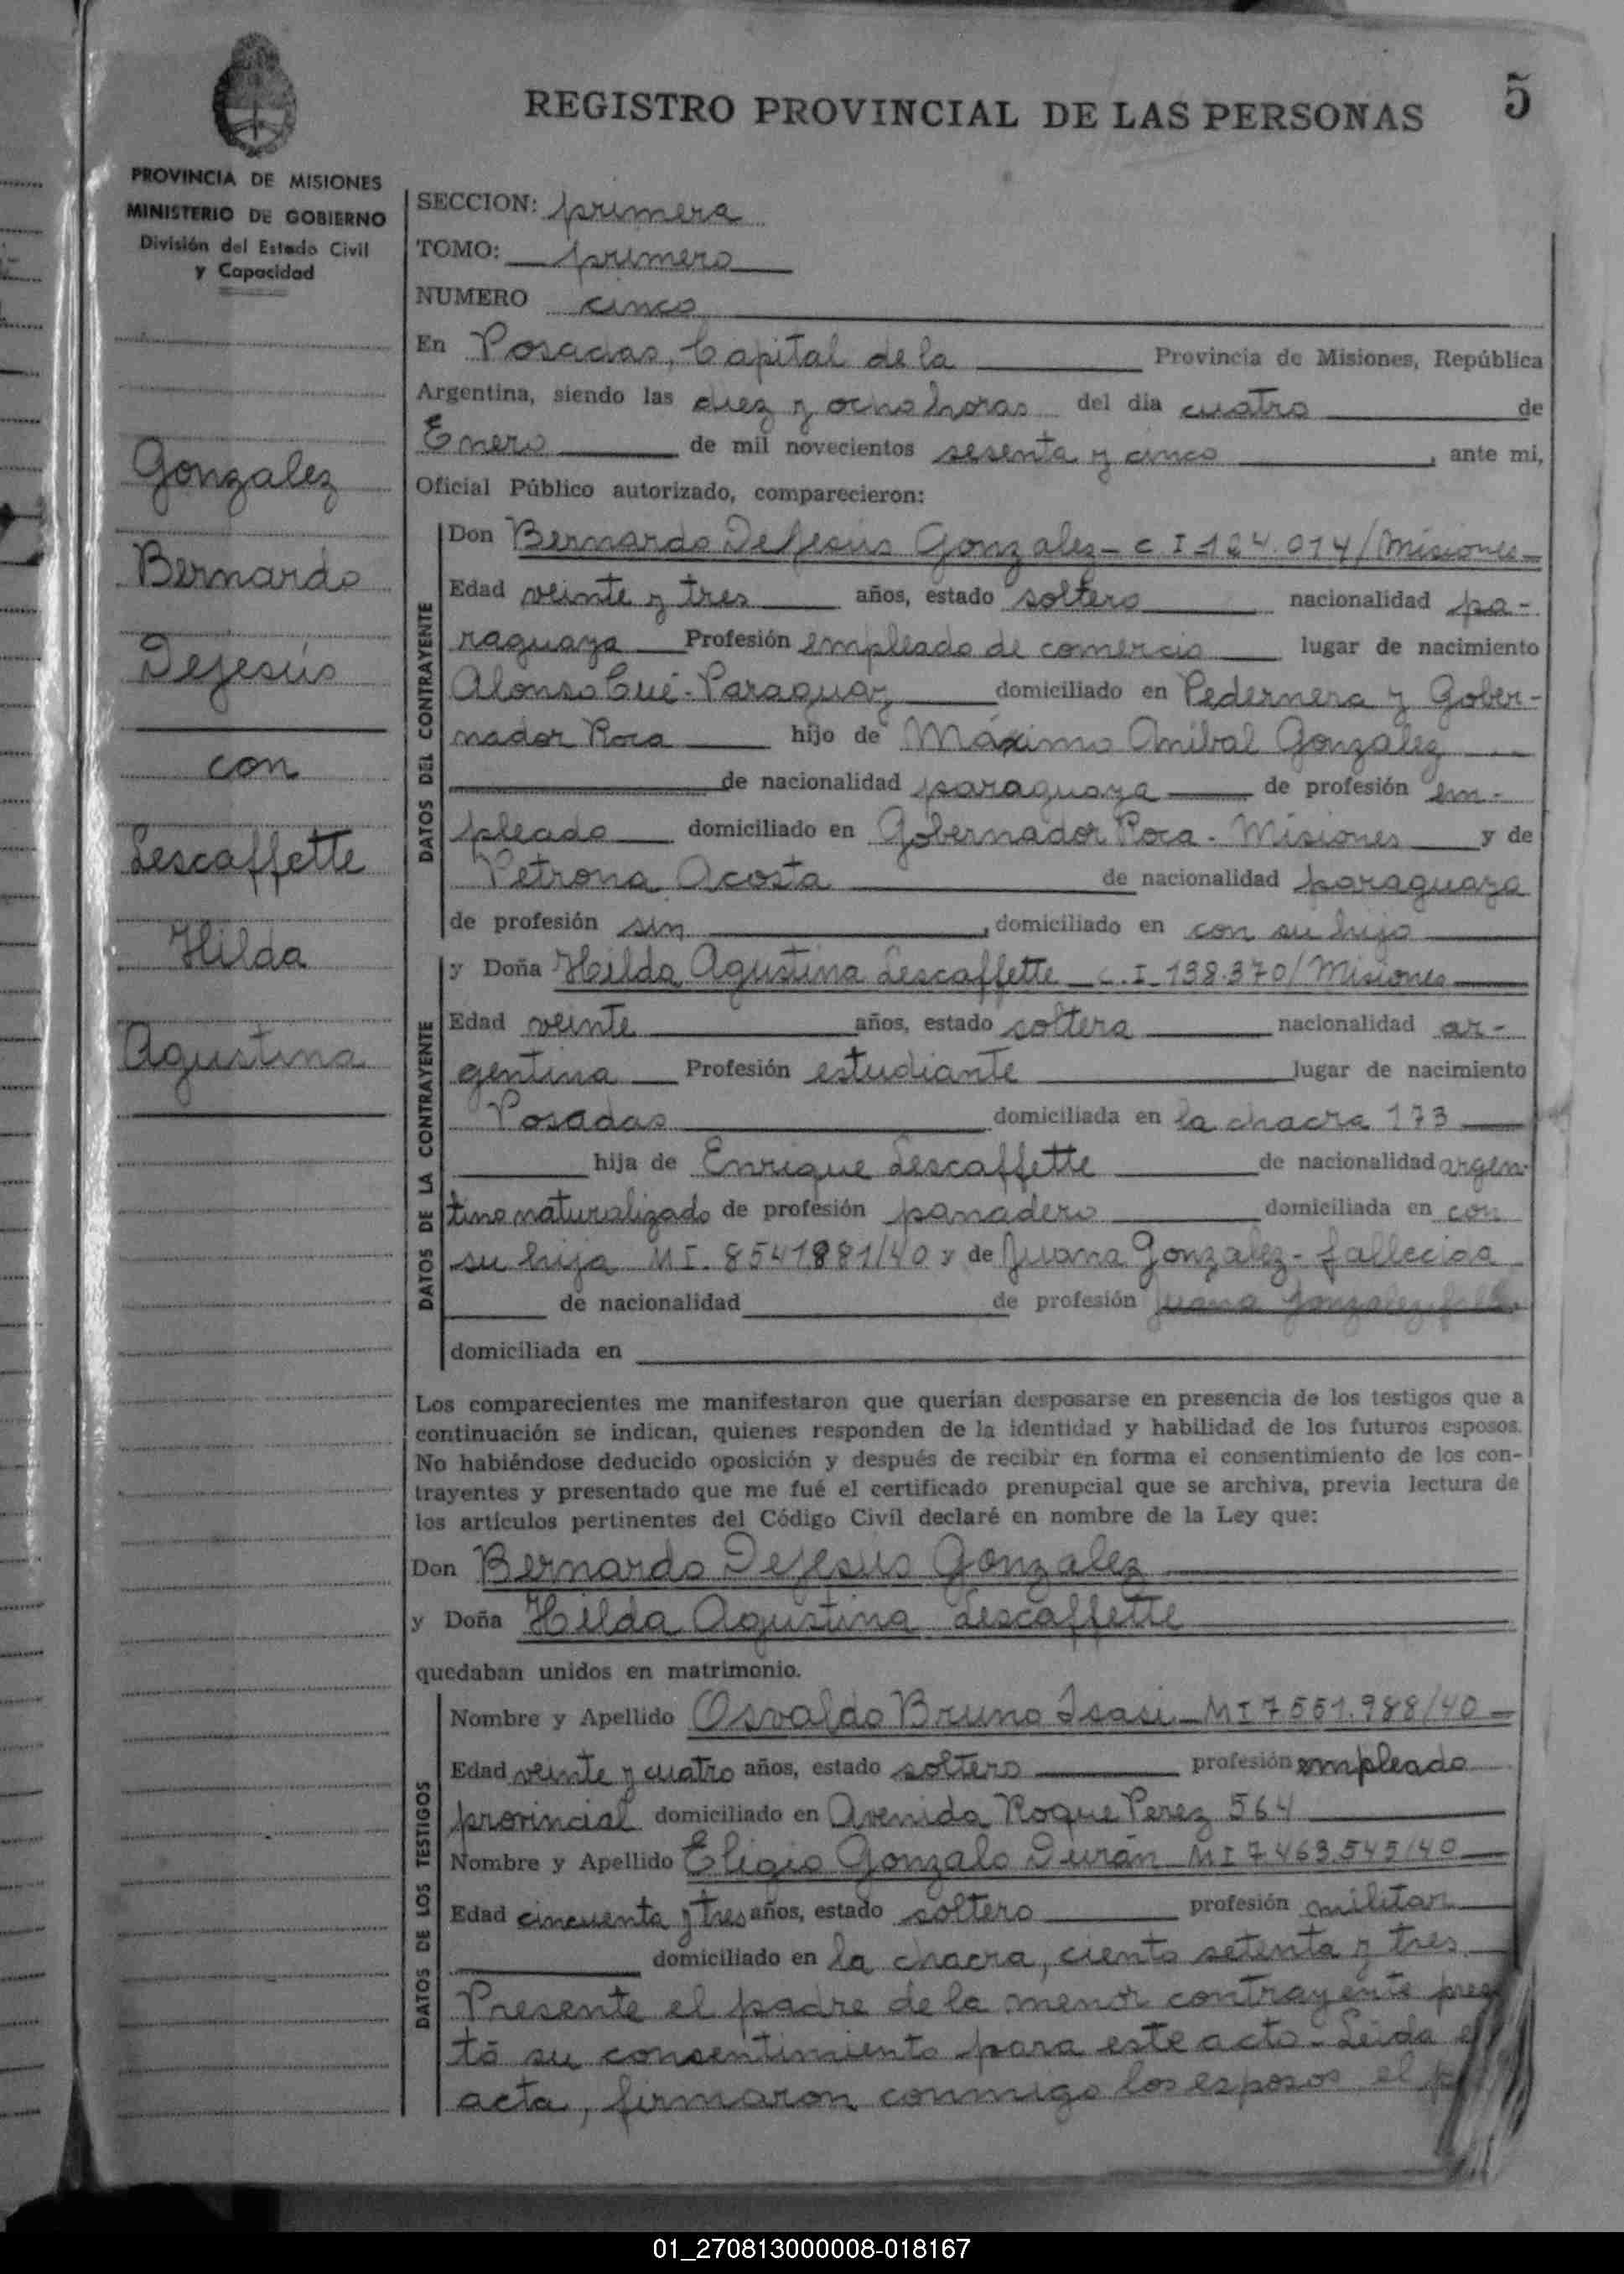 REGISTRO PROVINCIAL DE LAS PERSONAS
5
PROVINCIA DE MISIONES
MINISTERIO DE GOBIERNO
División del Estado Civil
y Capacidad
Gonzalez
Bernardo
Dejesús
con
Lescaffette
Hilda
Agustina
SECCION: primera
TOMO: primero
NUMERO cinco
En Posadas, Capital de la Provincia de Misiones, República
Argentina, siendo las diez y ocho horas del día cuatro de
Enero de mil novecientos sesenta y cinco, ante mi,
Oficial Público autorizado, comparecieron:
DATOS DEL CONTRAYENTE
Don Bernardo Dejesús Gonzalez - C I 124.014/Misiones
Edad veinte y tres años, estado soltero nacionalidad pa-
raguaya Profesión empleado de comercio lugar de nacimiento
Alonso Cué - Paraguay domiciliado en Pedernera y Gober-
nador Roca hijo de Máximo Anibal Gonzalez
de nacionalidad paraguaya de profesión em-
pleado domiciliado en Gobernador Roca - Misiones y de
Petrona Acosta de nacionalidad paraguaya
de profesión sin, domiciliado en con su hijo
DATOS DE LA CONTRAYENTE
y Doña Hilda Agustina Lescaffette - C.I. 138.370/Misiones
Edad veinte años, estado soltera nacionalidad ar-
gentina Profesión estudiante lugar de nacimiento
Posadas domiciliada en la chacra 173
hija de Enrique Lescaffette de nacionalidad argen-
tino naturalizado de profesión panadero domiciliada en con
su hija M I. 8541881/40 y de Juana Gonzalez - fallecida
de nacionalidad de profesión Juana Gonzalez
domiciliada en
Los comparecientes me manifestaron que querían desposarse en presencia de los testigos que a
continuación se indican, quienes responden de la identidad y habilidad de los futuros esposos.
No habiéndose deducido oposición y después de recibir en forma el consentimiento de los con-
trayentes y presentado que me fué el certificado prenupcial que se archiva, previa lectura de
los artículos pertinentes del Código Civil declaré en nombre de la Ley que:
Don Bernardo Dejesús Gonzalez
y Doña Hilda Agustina Lescaffette
quedaban unidos en matrimonio.
DATOS DE LOS TESTIGOS
Nombre y Apellido Osvaldo Bruno Isasi - M I 7551.988/40
Edad veinte y cuatro años, estado soltero profesión empleado
provincial domiciliado en Avenida Roque Perez 564
Nombre y Apellido Eligio Gonzalo Durán M I 7.463.545/40
Edad cincuenta y tres años, estado soltero profesión militar
domiciliado en la chacra, ciento setenta y tres
Presente el padre de la menor contrayente pres
tó su consentimiento para este acto - Leida el
acta, firmaron conmigo los esposos el p
01_270813000008-018167